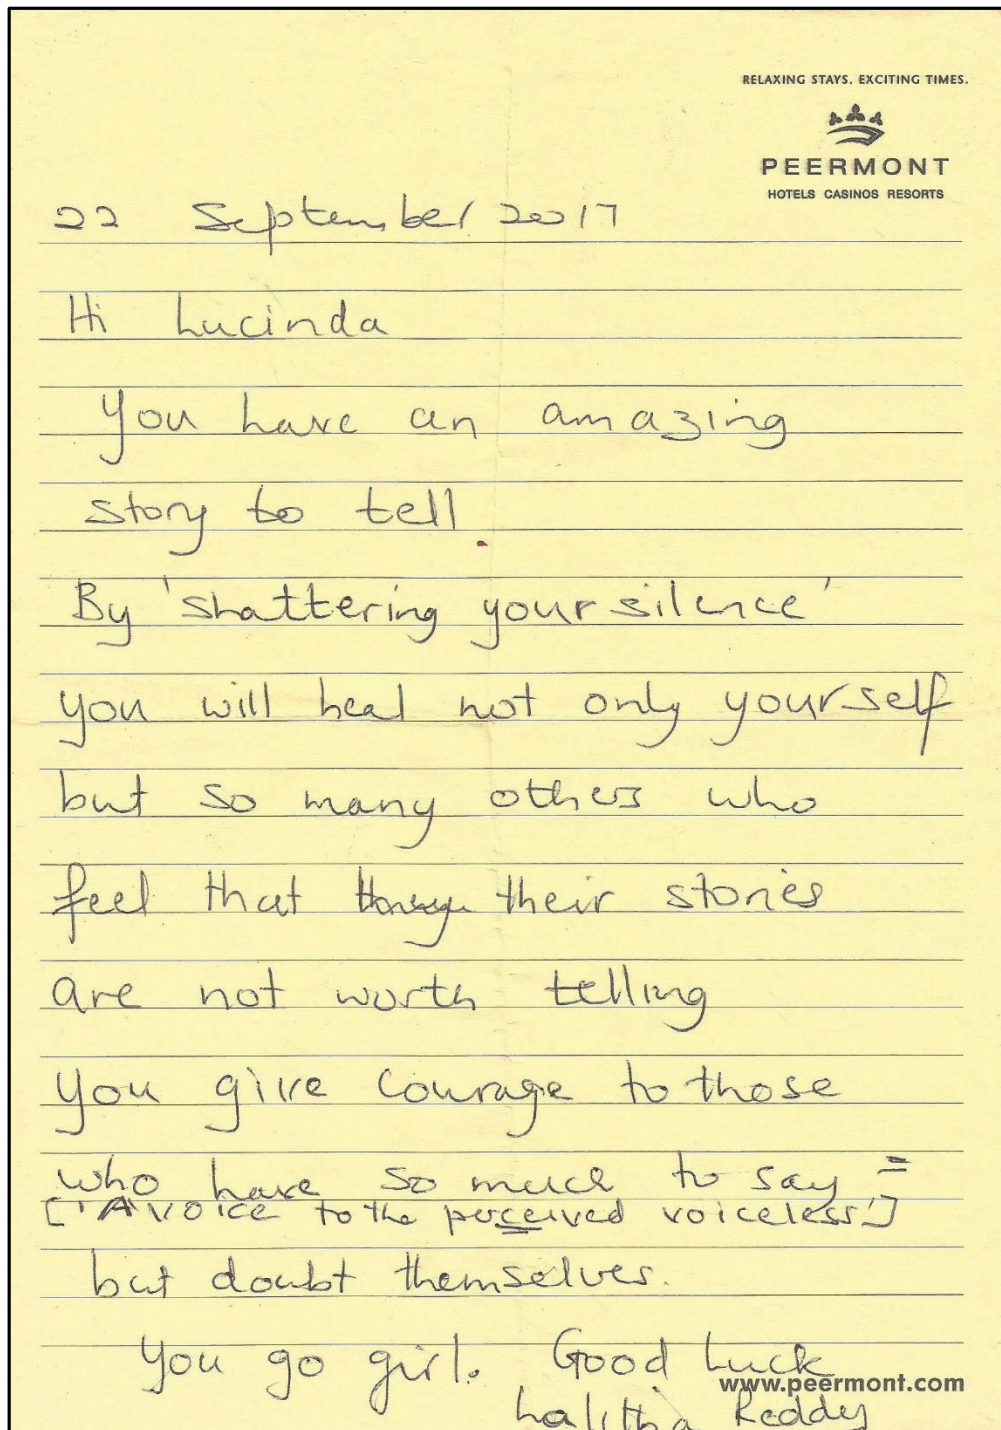 RELAXING STAYS. EXCITING TIMES.
PEERMONT
HOTELS CASINOS RESORTS
22 September 2017
Hi Lucinda
You have an amazing
story to tell.
By 'shattering your silence'
you will heal not only yourself
but so many others who
feel that their stories
are not worth telling
You give courage to those
who have so much to say =
['A voice to the perceived voiceless']
but doubt themselves.
You go girl. Good Luck
www.peermont.com
Lalitha Reddy